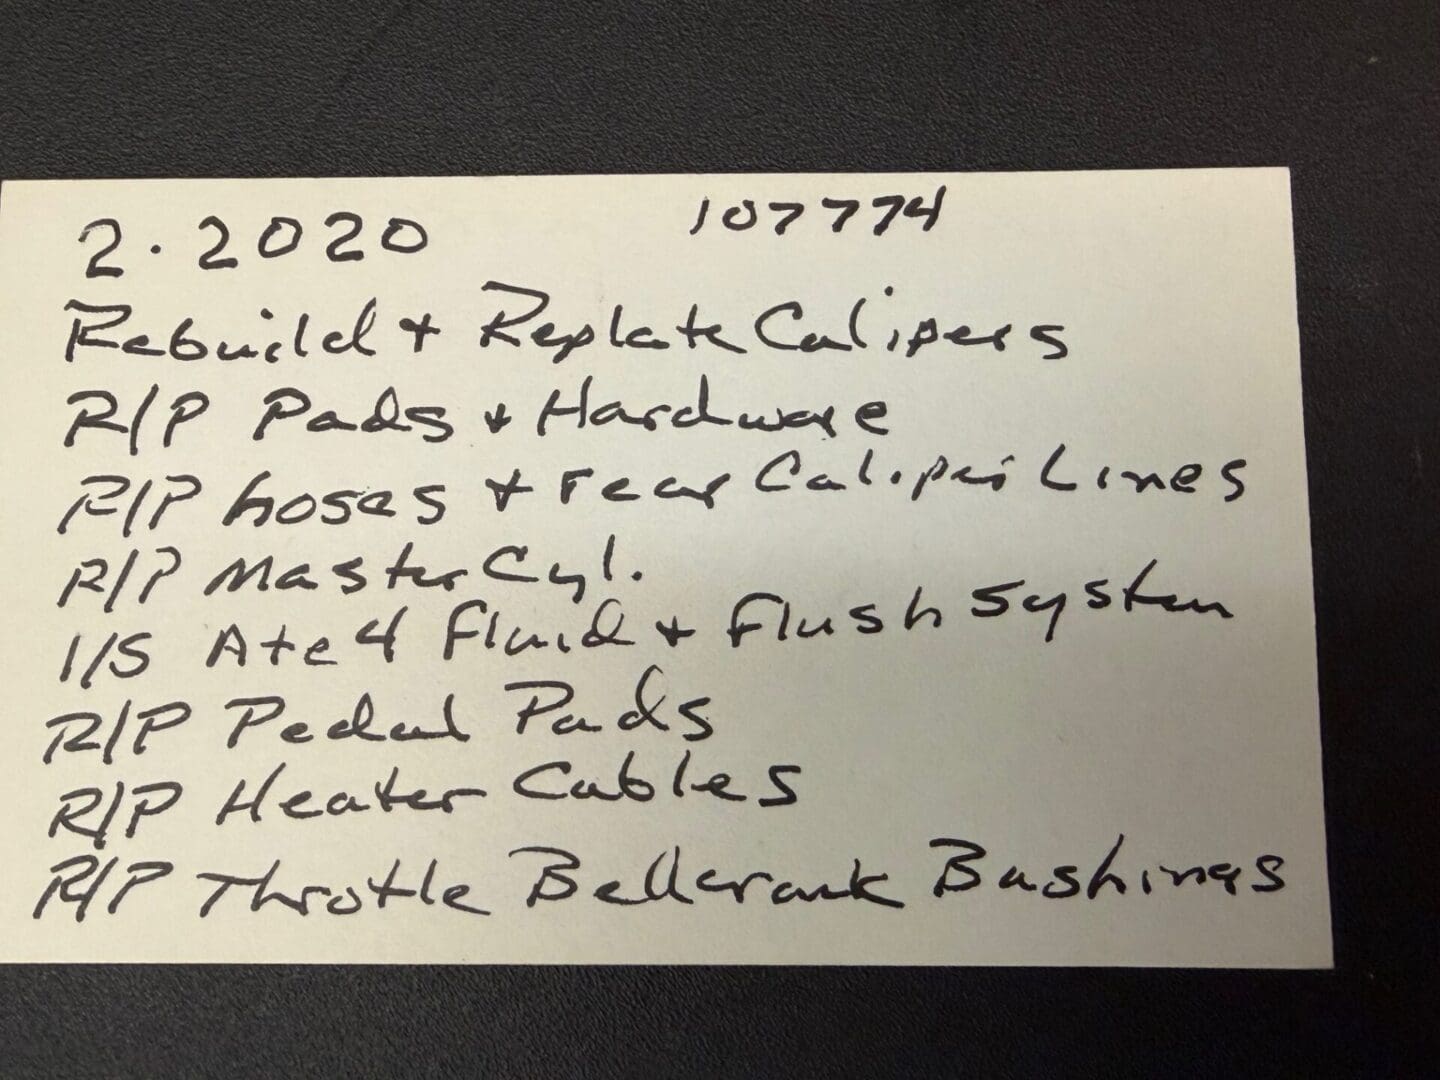 2.2020 107774
Rebuild + Replate Calipers
R/P Pads + Hardware
R/P hoses + rear Caliper Lines
R/P Master Cyl.
I/S Ate 4 fluid + Flush System
R/P Pedal Pads
R/P Heater Cables
R/P Throttle Bellcrank Bushings